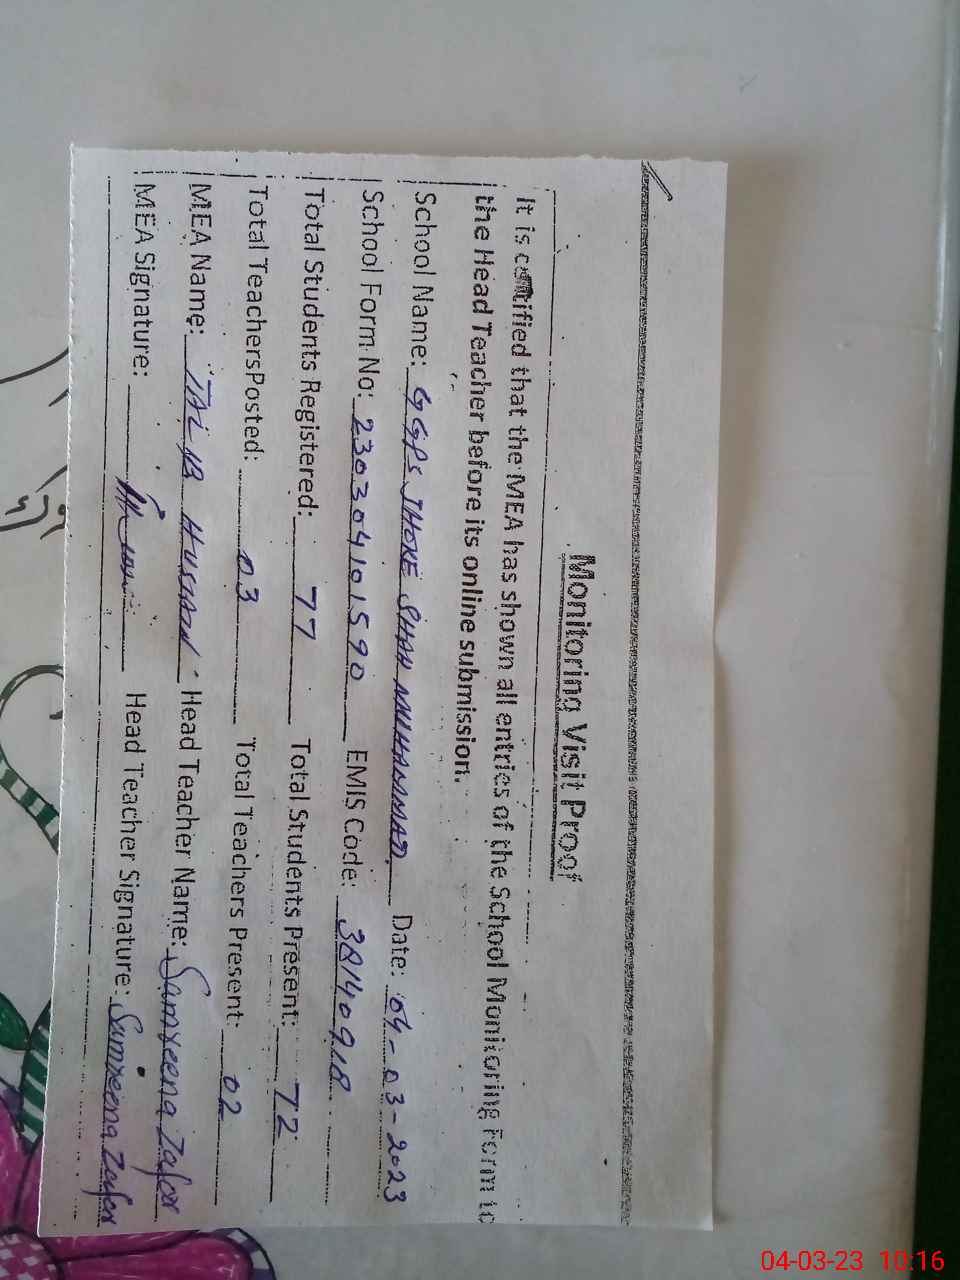 Monitoring Visit Proof
It is certified that the MEA has shown all entries of the School Monitoring Form to
the Head Teacher before its online submission.
School Name: GGPS JHOKE SHAH MUHAMMAD. Date: 04-03-2023
School Form No: 230304101590 EMIS Code:
Total Students Registered: 77 Total Students Present: 72
Total TeachersPosted: 03 Total Teachers Present: 02
MEA Name: HUSSAIN Head Teacher Name: Samreena Zafar
MEA Signature: Head Teacher Signature: Samreena Zafar
04-03-23 10:16